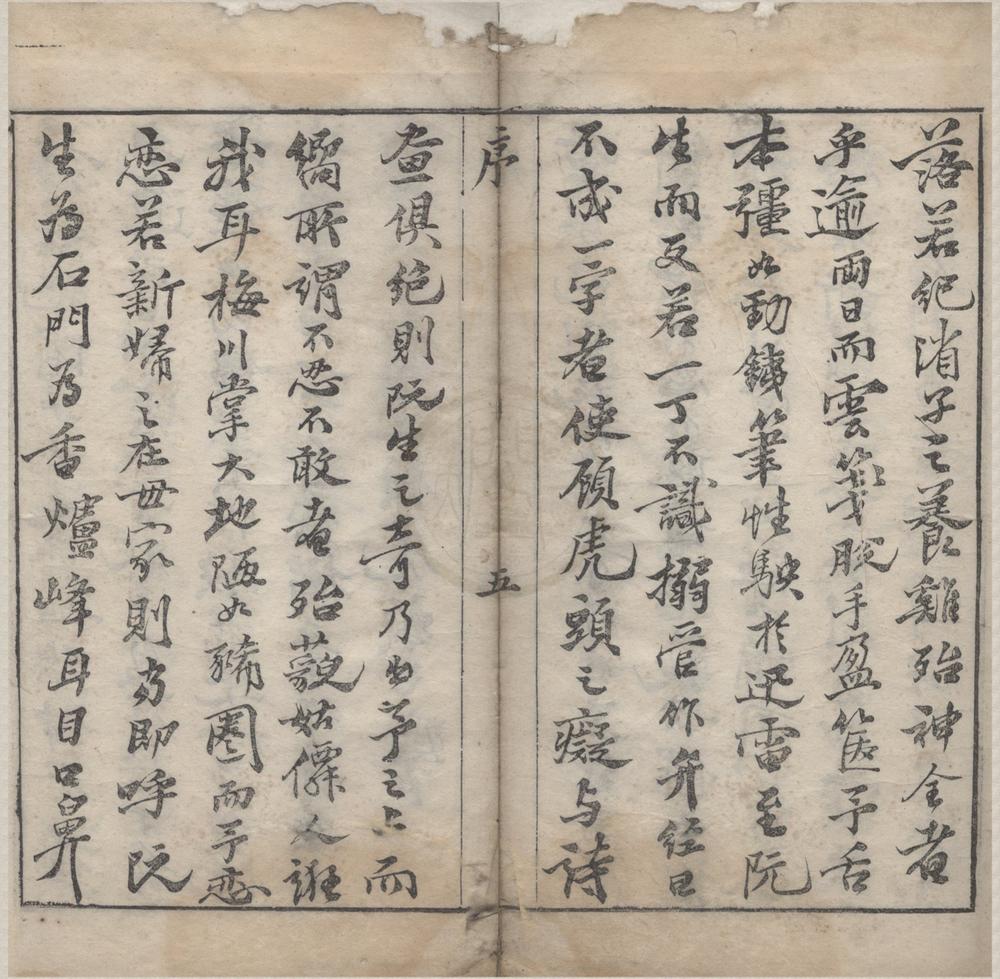 落若紀消子之養雞殆神全者
乎逾兩日而雲箋脫手盈篋予舌
本彊如勁鐵筆性駛於迅雷至阮
生而反若一丁不識搦管作弁經日
不成一字者使頋虎頭之癡与詩
序
五
畫俱絶則阮生之奇乃出予之上而
嚮所謂不忍不敢者殆藐姑僊人誑
我耳梅川掌大地陋如豨圈而予戀
戀若新婦之在世家則為即呼阮
生為石門為香爐峰耳目口鼻